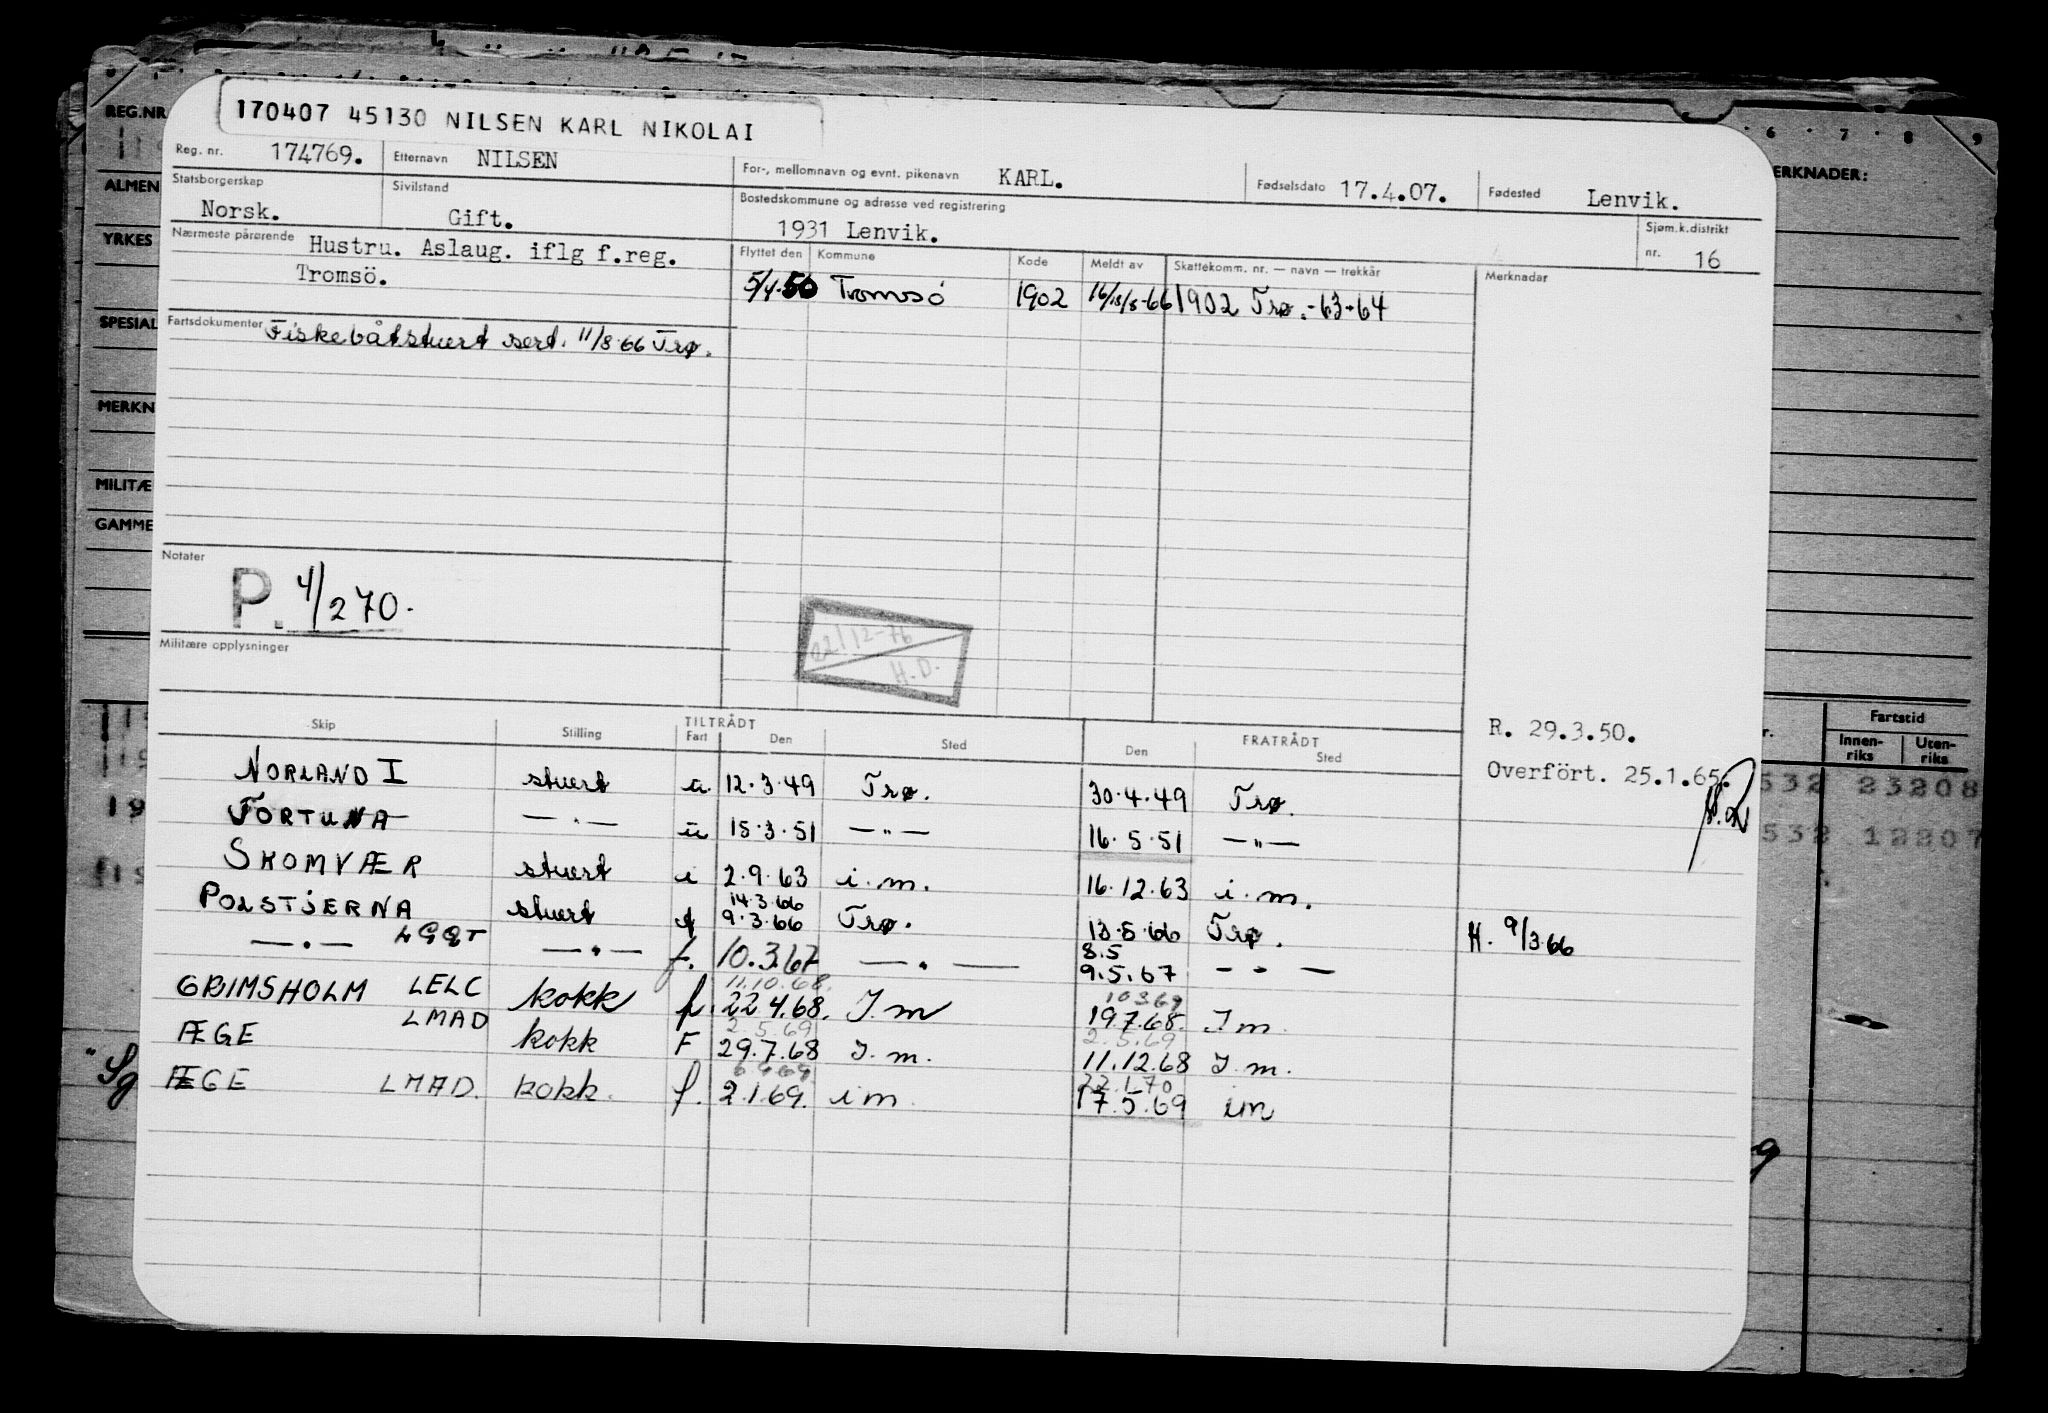 170407 45130 NILSEN KARL NIKOLAI
REG.NR
Reg. nr. 174769. Etternavn NILSEN For-, mellomnavn og evnt. pikenavn KARL. Fødselsdato 17.4.07. Fødested Lenvik.
6 7 8 9
ERKNADER:
ALMEN
Statsborgerskap Norsk. Sivilstand Gift. Bostedskommune og adresse ved registrering 1931 Lenvik. Sjøm.k.distrikt nr. 16
YRKES
Nærmeste pårørende Hustru. Aslaug. iflg f.reg.
Tromsö.
Flyttet den Kommune Kode Meldt av Skattekomm. nr. — navn — trekkår Merknader
5/4.50 Tromsö 1902 1902 Trø.-63-64
SPESIAL
Fartsdokumenter Fiskebåtstuert sert. 11/8.66 Trø.
MERKN
MILITÆ
GAMME
Notater
P. 4/270.
22/12-76
H.D.
Militære opplysninger
Skip Stilling TILTRÅDT Fart Den Sted FRATRÅDT Den Sted
R. 29.3.50.
Overfört. 25.1.65.
r. Fartstid
Innen-riks Uten-riks
532 23208
532 12207
NORLAND I stuert u. 12.3.49 Trø. 30.4.49 Trø.
FORTUNA —"— u 15.3.51 —"— 16.5.51 —"—
SKOMVÆR stuert i 2.9.63 i.m. 16.12.63 i.m.
14.3.66
POLSTJERNA stuert f 9.3.66 Trø. 13.5.66 Trø. H. 9/3.66
8.5
—"— LGQT —"— f. 10.3.67 —"— 9.5.67 —"—
11.10.68. 10369
GRIMSHOLM LELC kokk f. 22.4.68. I.m 19.7.68. I.m.
2.5.69 2.5.69
ÆGE LMAD kokk F 29.7.68 I.m. 11.12.68 I.m.
6.9.69 22.1.70
ÆGE LMAD. kokk. f. 2.1.69. i m 17.5.69 im